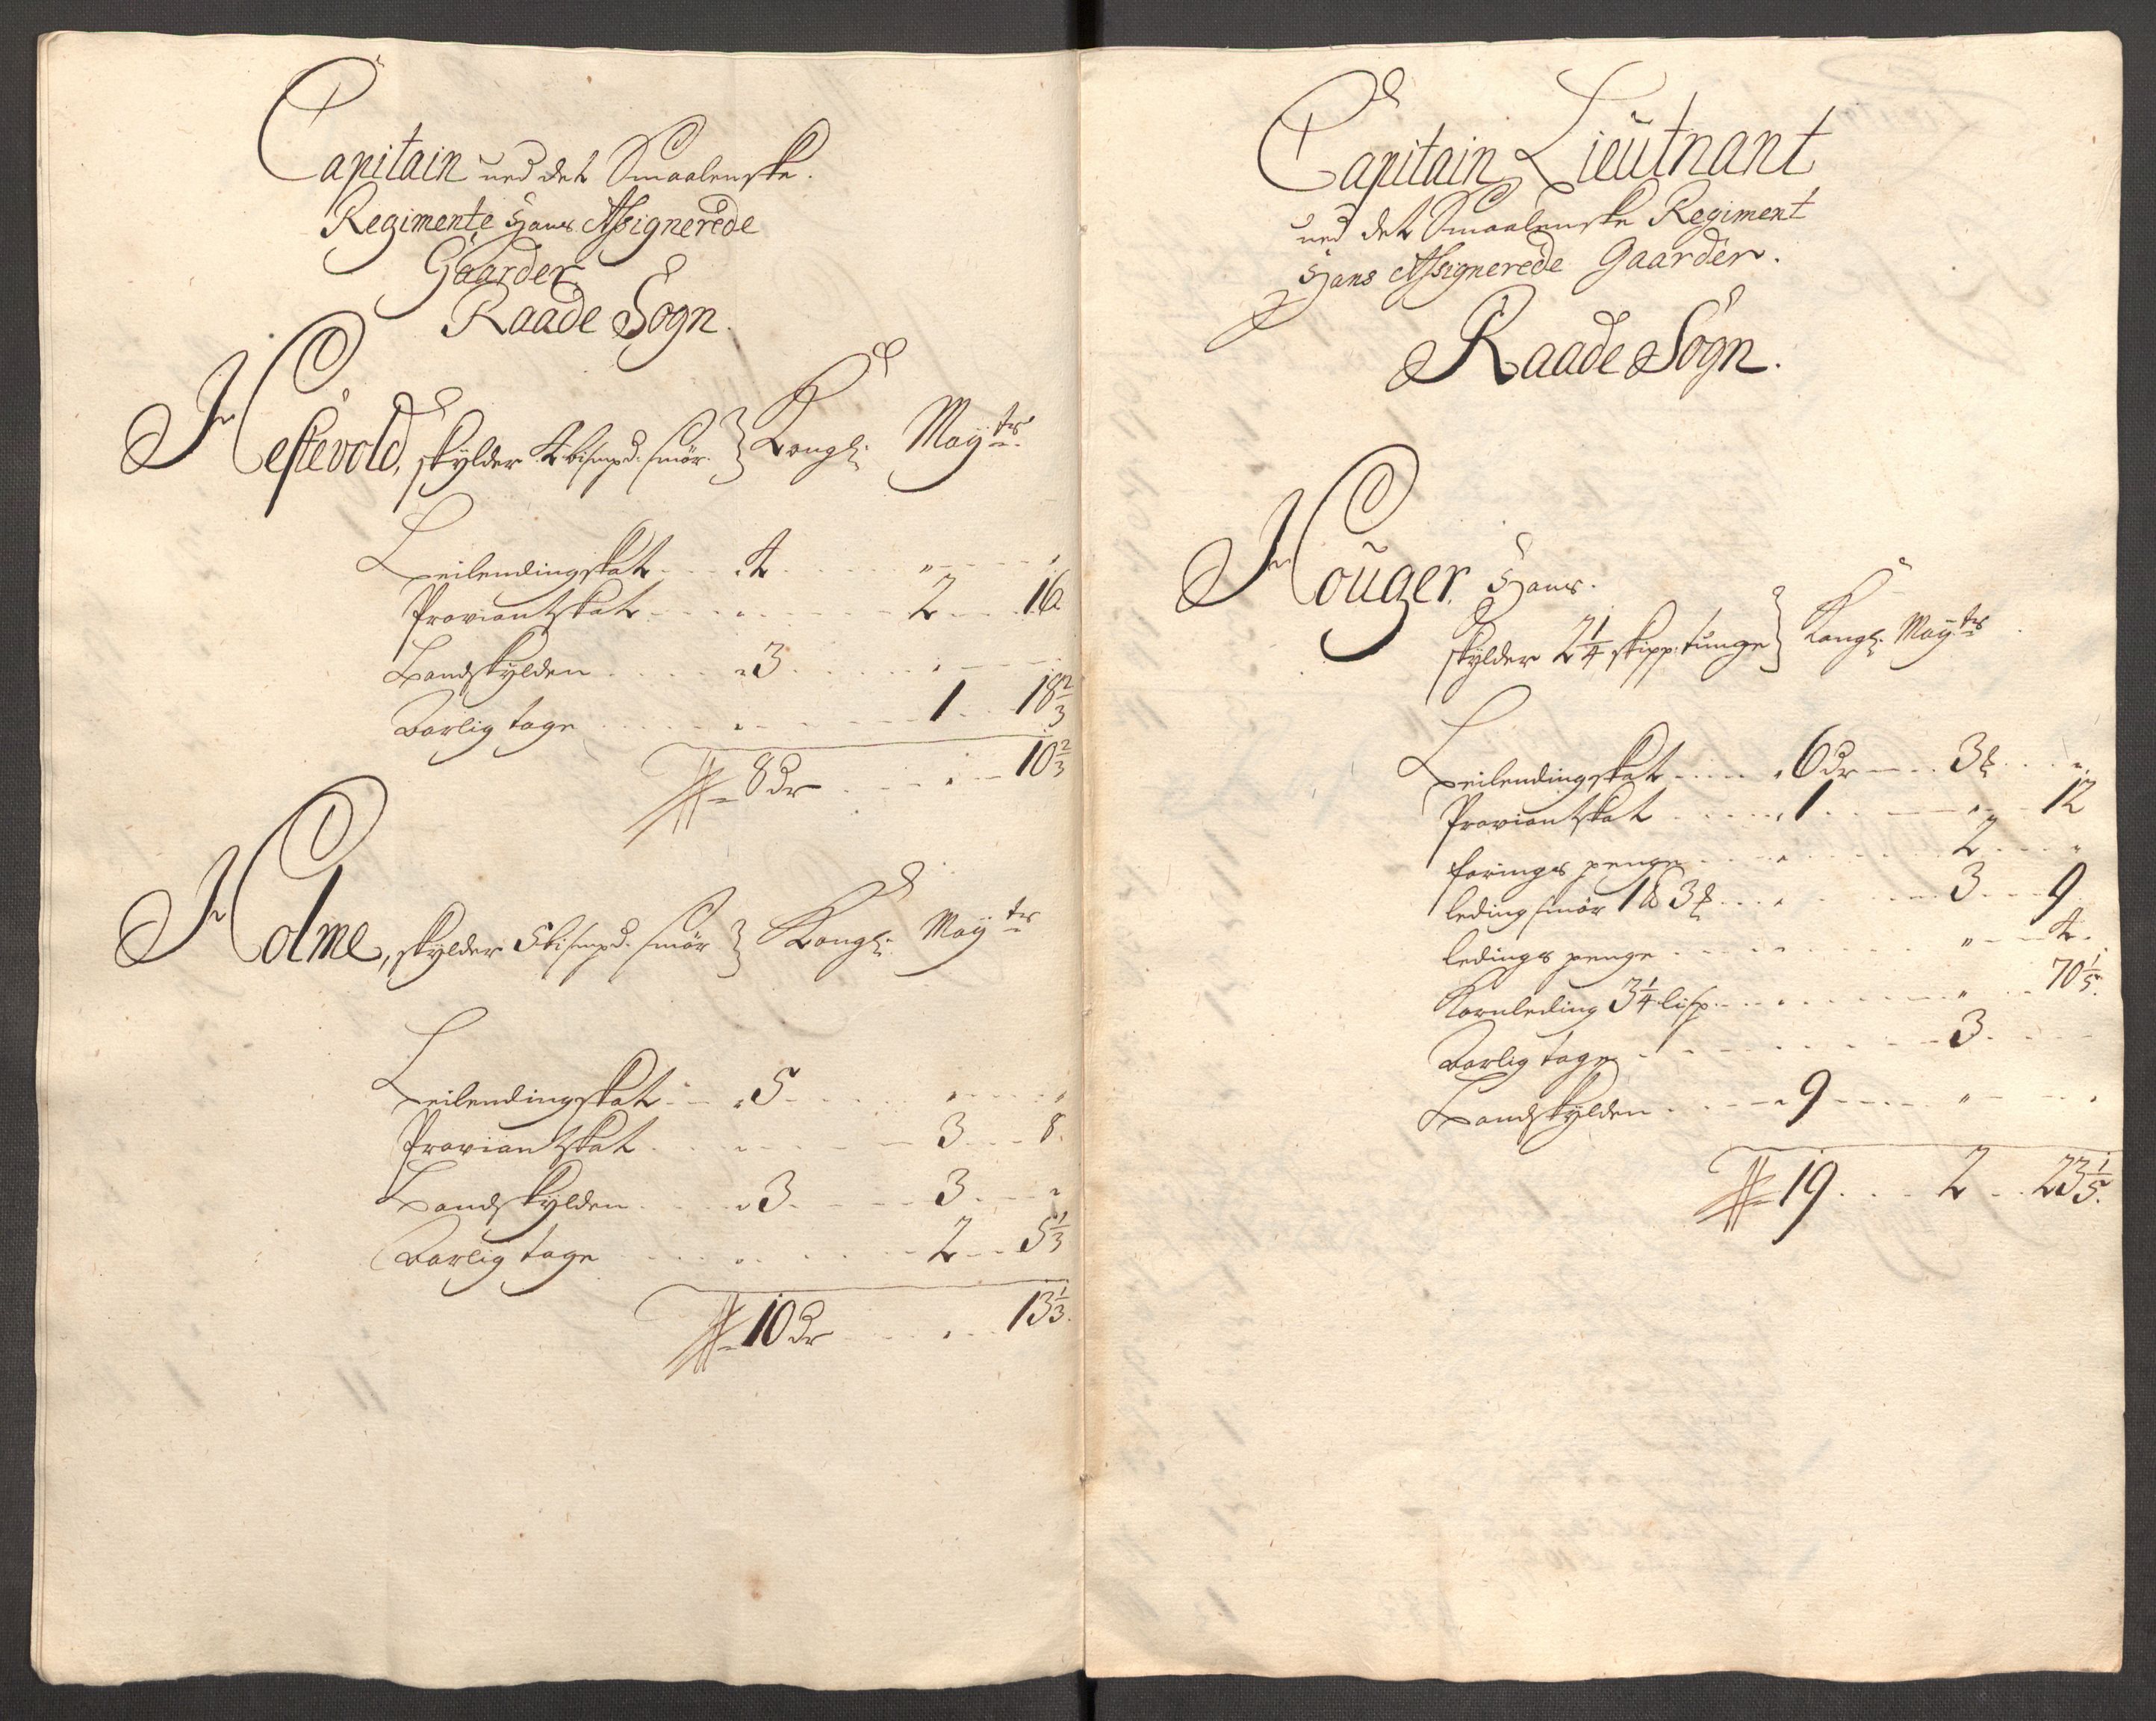 Capitain ved det Smaalenske.
Regimente Hans Assignerede
Gaarder
Raade Sogn.
Hestevold, skylder 4 bismpd: smör } Kongl: Mayts
Leilendingskat 4 " "
Proviantskat " 2 16
Landskylden 3 "
Aarlig tage " 1 18 2/3
8 dr " 10 2/3
Holme, skylder 5 bismpd: smör } Kongl: Mayts
Leilendingskat 5 " "
Proviantskat " 3 8
Landskylden 3 3 "
Aarlig tage " 2 5 1/3
10 dr " 13 1/3
Capitain Lieutnant
ved det Smaalenske Regiment
Hans Assignerede Gaarder.
Raade Sogn.
Houger. Hans.
skylder 2 1/4 skipp: tunge } Kongl: Mayts
Leilendingskat 6 dr 3 "
Proviantskat 1 " 12
foringspenge " 2 "
leding smör 1 3 " 3 9
ledings penge " " 4
Kornleding 3 1/4 lisp: " " 70 1/5
Aarlig tage 3
Landskylden 9 " "
19 2 23 1/5